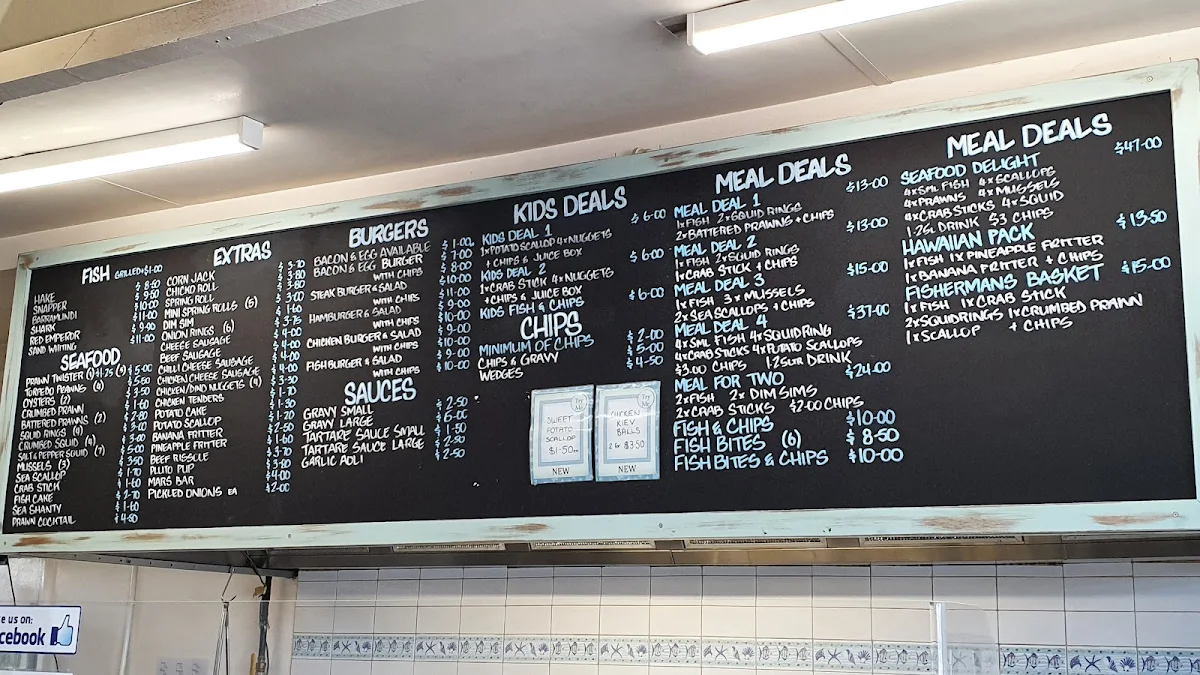 FISH GRILLED+$1-00
HAKE $8-50
SNAPPER $9-50
BARRAMUNDI $10-00
SHARK $11-00
RED EMPEROR $9-90
SAND WHITING $11-00
SEAFOOD
PRAWN TWISTER (1) $1-25 (4) $5-00
TORPEDO PRAWNS (4)
OYSTERS (2)
CRUMBED PRAWN
BATTERED PRAWNS (2)
SQUID RINGS (4)
CRUMBED SQUID (4)
SALT & PEPPER SQUID (7)
MUSSELS (3)
SEA SCALLOP
CRAB STICK
FISH CAKE
SEA SHANTY
PRAWN COCKTAIL $4-50
EXTRAS
CORN JACK
CHICKO ROLL
SPRING ROLL
MINI SPRING ROLLS (5)
DIM SIM
ONION RINGS (6)
CHEESE SAUSAGE
BEEF SAUSAGE
CHILLI CHEESE SAUSAGE
CHICKEN CHEESE SAUSAGE
CHICKEN/DINO NUGGETS (4)
CHICKEN TENDERS
POTATO CAKE
POTATO SCALLOP
BANANA FRITTER
PINEAPPLE FRITTER
BEEF RISSOLE
PLUTO PUP
MARS BAR
PICKLED ONIONS EA
BURGERS
BACON & EGG AVAILABLE $1-00
BACON & EGG BURGER $7-00
WITH CHIPS $8-00
STEAK BURGER & SALAD $10-00
WITH CHIPS $11-00
HAMBURGER & SALAD $9-00
WITH CHIPS $10-00
CHICKEN BURGER & SALAD $9-00
WITH CHIPS $10-00
FISH BURGER & SALAD $9-00
WITH CHIPS $10-00
SAUCES
GRAVY SMALL $2-50
GRAVY LARGE $6-00
TARTARE SAUCE SMALL $1-50
TARTARE SAUCE LARGE $2-50
GARLIC AOLI $2-50
KIDS DEALS
KIDS DEAL 1 $6-00
1xPOTATO SCALLOP 4xNUGGETS
+ CHIPS & JUICE BOX
KIDS DEAL 2 $6-00
1xCRAB STICK 4xNUGGETS
+ CHIPS & JUICE BOX
KIDS FISH & CHIPS $6-00
CHIPS
MINIMUM OF CHIPS $2-00
CHIPS & GRAVY $5-00
WEDGES $4-50
Try Me
SWEET
POTATO
SCALLOP
$1-50ea
NEW
Try Me
CHICKEN
KIEV
BALLS
2 for $3.50
NEW
MEAL DEALS
MEAL DEAL 1 $13-00
1xFISH 2xSQUID RINGS
2xBATTERED PRAWNS + CHIPS
MEAL DEAL 2 $13-00
1xFISH 2xSQUID RINGS
1xCRAB STICK + CHIPS
MEAL DEAL 3 $15-00
1xFISH 3xMUSSELS
2xSEA SCALLOPS + CHIPS
MEAL DEAL 4 $37-00
4xSML FISH 4xSQUID RING
4xCRAB STICKS 4xPOTATO SCALLOPS
$3.00 CHIPS 1-25LTR DRINK
MEAL FOR TWO $24-00
2xFISH 2x DIM SIMS
2xCRAB STICKS $2-00 CHIPS
FISH & CHIPS $10-00
FISH BITES (6) $8-50
FISH BITES & CHIPS $10-00
MEAL DEALS
SEAFOOD DELIGHT $47-00
4xSML FISH 4xSCALLOPS
4xPRAWNS 4xMUSSELS
4xCRAB STICKS 4xSQUID
1-25L DRINK $3 CHIPS
HAWAIIAN PACK $13-50
1xFISH 1xPINEAPPLE FRITTER
1xBANANA FRITTER + CHIPS
FISHERMANS BASKET $15-00
1xFISH 1xCRAB STICK
2xSQUIDRINGS 1xCRUMBED PRAWN
1xSCALLOP + CHIPS
e us on:
cebook